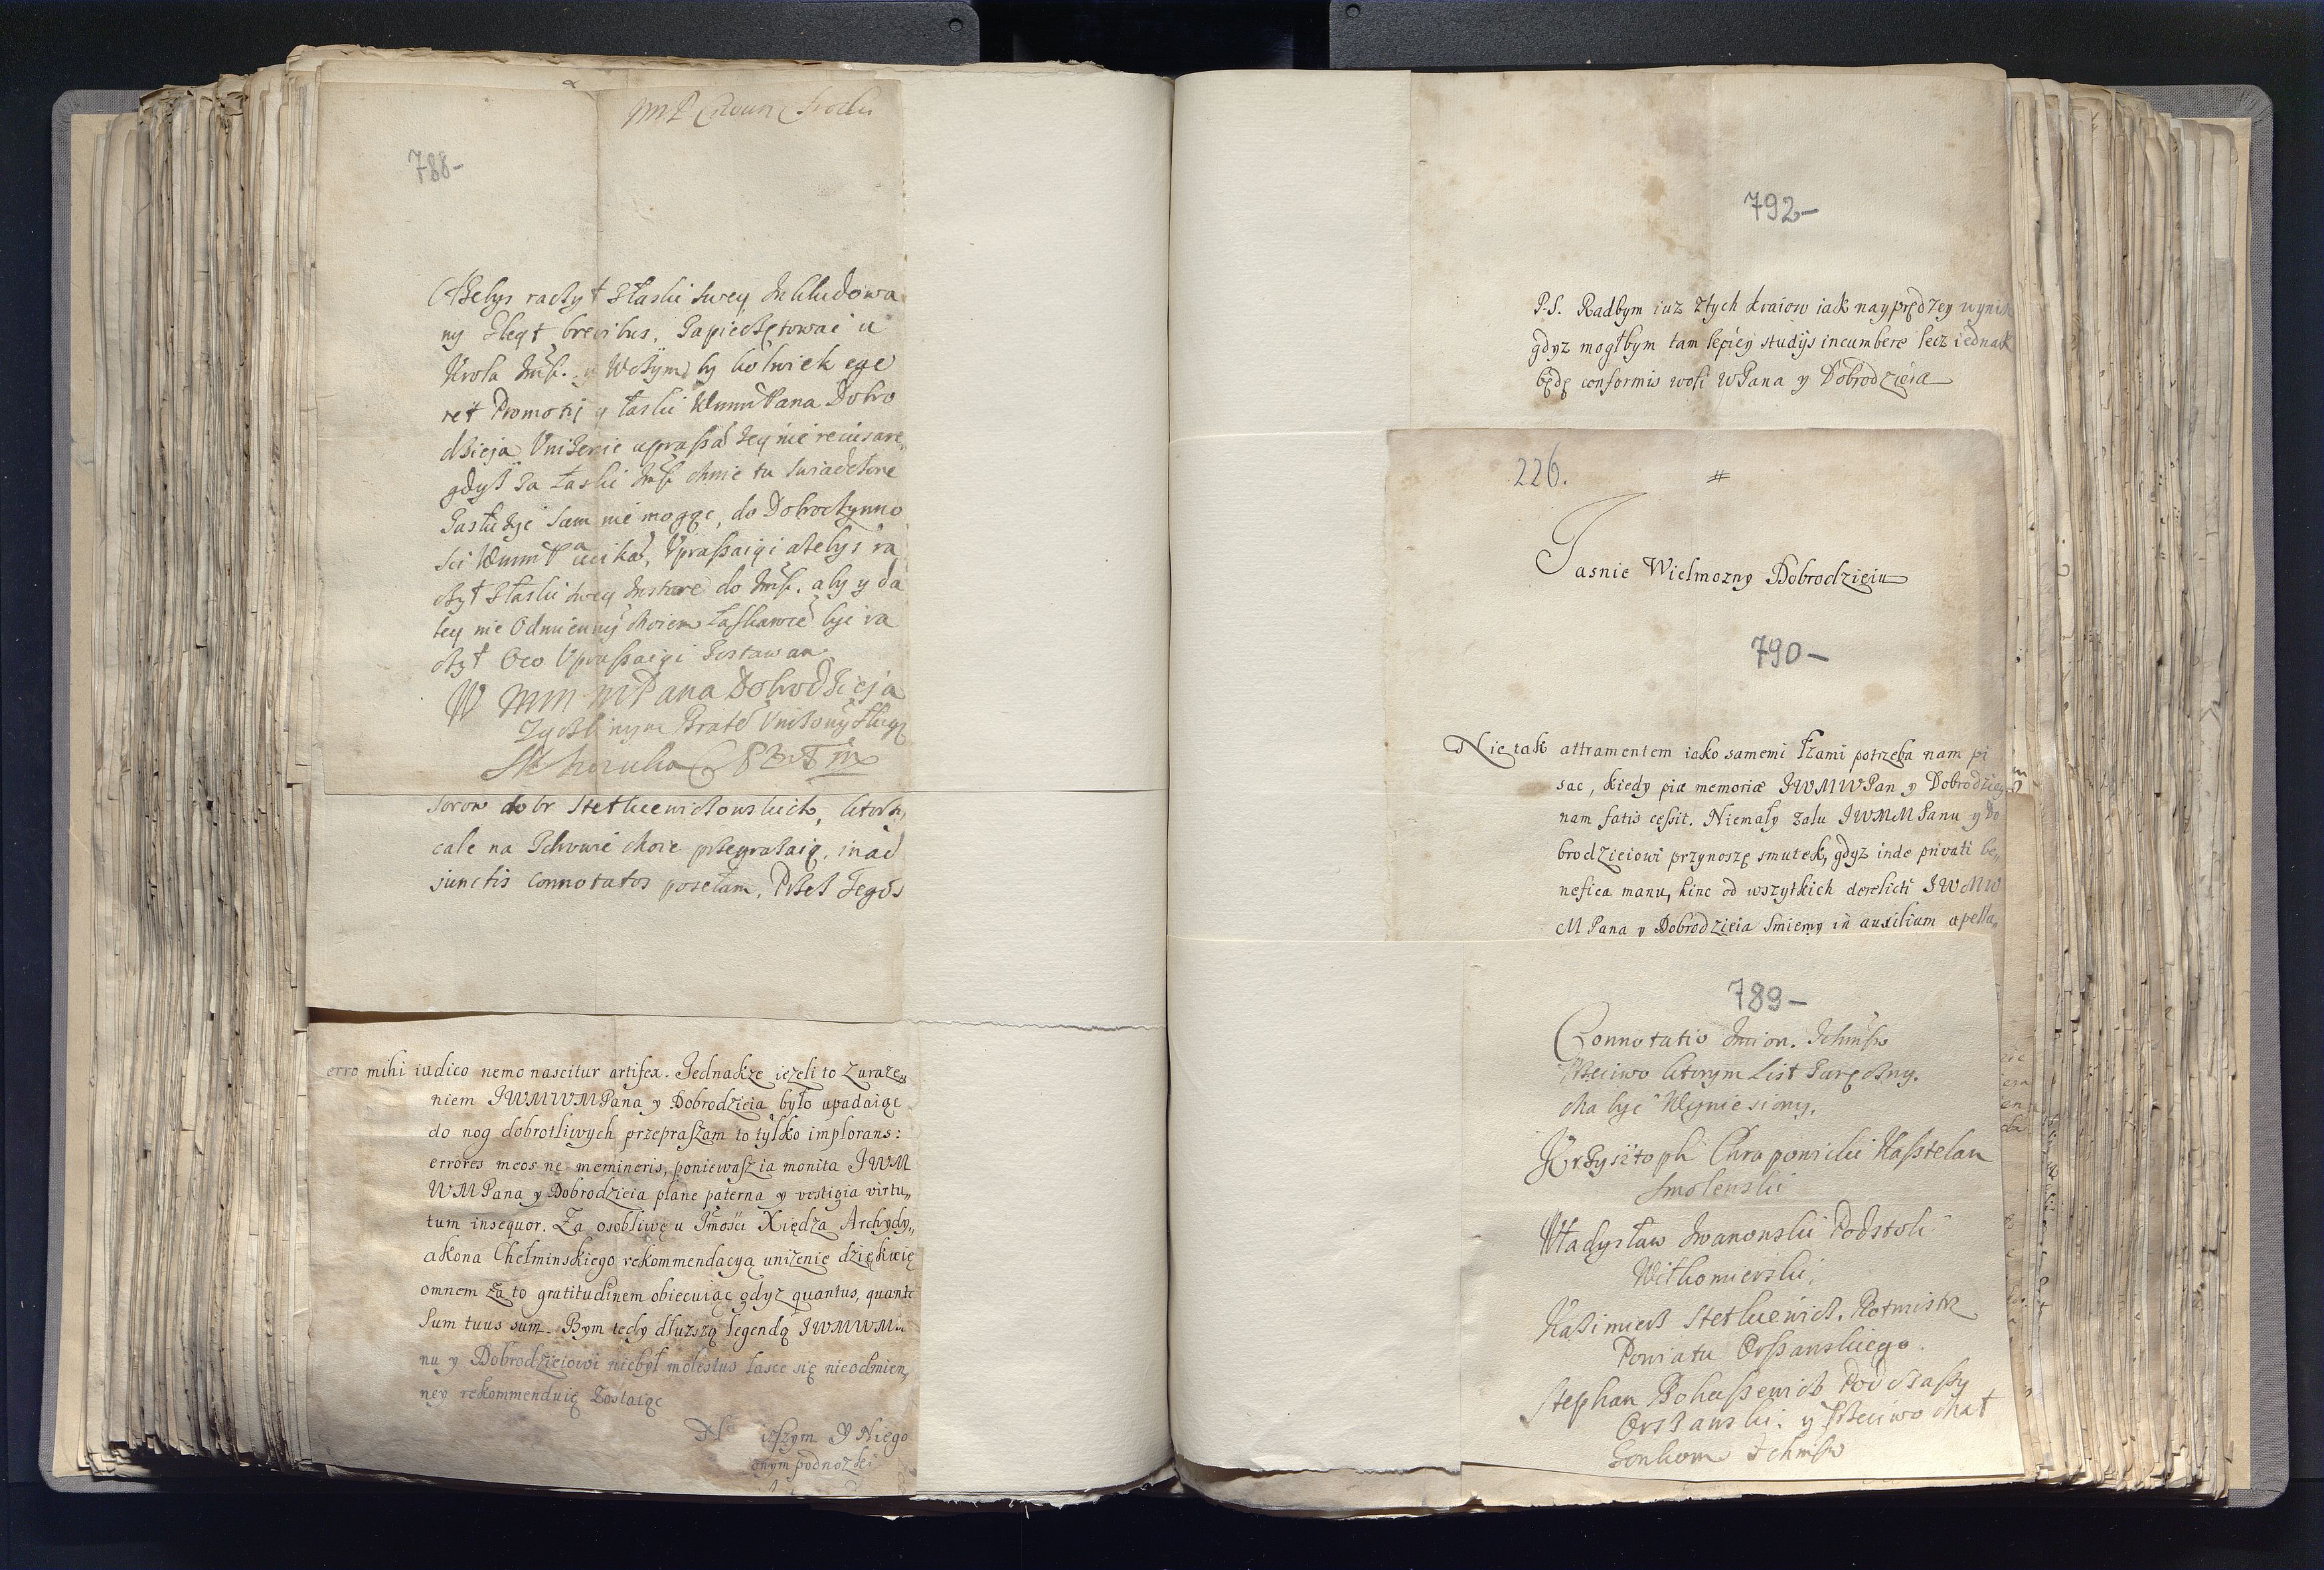 788-
ażebyś raczył z łaski swey
ny zległ brevibus, zapieczętować u
Krola
ret Promotij y łaski WmmPana Dobro
dzieja Uniżenie upraszał tey nie recusare,
gdyż za łaski mnie tu świadczone
Zasłużyć sam nie mogąc, do Dobroczynno
ści Wmm Pana Upraszaiąc ażebyś ra
czył z łaski swey do aby y da
ley nie Odmiennym moiem łaskawcą być ra
czył Oco Upraszaiąc Zostawam
W MM MPana Dobrodzieja
Życzliwym Bratem Uniżonym sługą
sorow dobr Stetkiewiczowskich, ktorzy
cale na Ichmści moie przegrażaią, in ad
junctis connotatos posełam, Przez Tegoż
erro mihi iudico nemo nascitur artifex. Jednakże ieżeli to zuraże„
niem JWMWMPana y Dobrodzieia było upadaiąc
do nog dobrotliwych przepraszam to tylko implorans:
errores meos ne memineris, poniewasz ia monita JWM
WMPana y Dobrodzieia plane paterna y vestigia virtu„
tum insequor. Za osobliwę u Jmości Xiędza Archydy„
akona Chełminskiego rekommendacyą uniżenie dziękuię
omnem za to gratitudinem obiecuiąc gdyz quantus, quantę
sum tuus sum. Bym tedy dłuzszą legendą JWMWM
nu y Dobrodzieiowi niebył molestus łasce się nieodmien„
ney rekommenduię zostaiąc
iższym Y Niego
onym podnożki
792-
P.S. Radbym iuz ztych kraiow iak nayprędzey wynisc
gdyz mogłbym tam lepiey studijs incumbere lecz iednak
będę conformis woli WPana y Dobrodzieia
226. #
Jasnie Wielmozny Dobrodzieiu
790-
Nie tak attramentem iako samemi łzami potrzeba nam pi
sac, kiedy piæ memoriæ JWMWPan y Dobrodziey
nam fatis ceßit. Niemały zalu JWMMPanu y Do
brodzieiowi przynoszę smutek, gdyz inde privati be„
nefica manu, hinc od wszytkich derelicti JWMW
MPana y Dobrodzieia smiemy in auxilium apella„
789-
Connotatio Imion. Ichmśw
Przeciwo ktorym List Zaręczny.
Ma być Wyniesiony.
Krzysztoph Chrapowicki Kasztelan
Smolenski
Władysław Iwanowski Podstoli
Wiłkomierski,
Kazimierz Stetkiewicz. Rotmistrz
Powiatu Orszanskiego.
Stephan Bohuszewicz Podczaszy
Orszanski. y Przeciwo Mał
żonkom Ichmśw